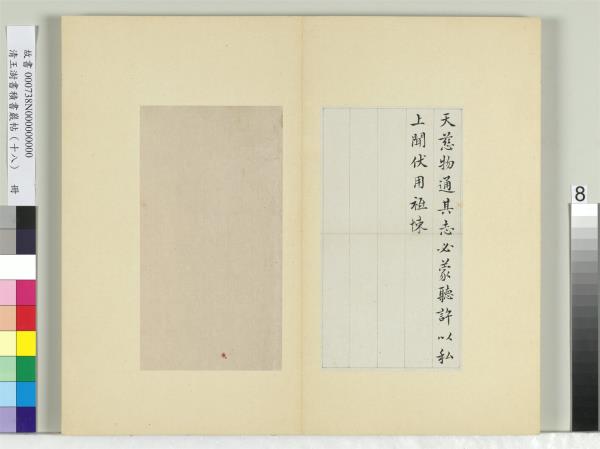 天慈物通其志必蒙聽許以私
上聞伏用祗悚
故書 000738N000000000
清王澍書積書巖帖（十八） 冊
8